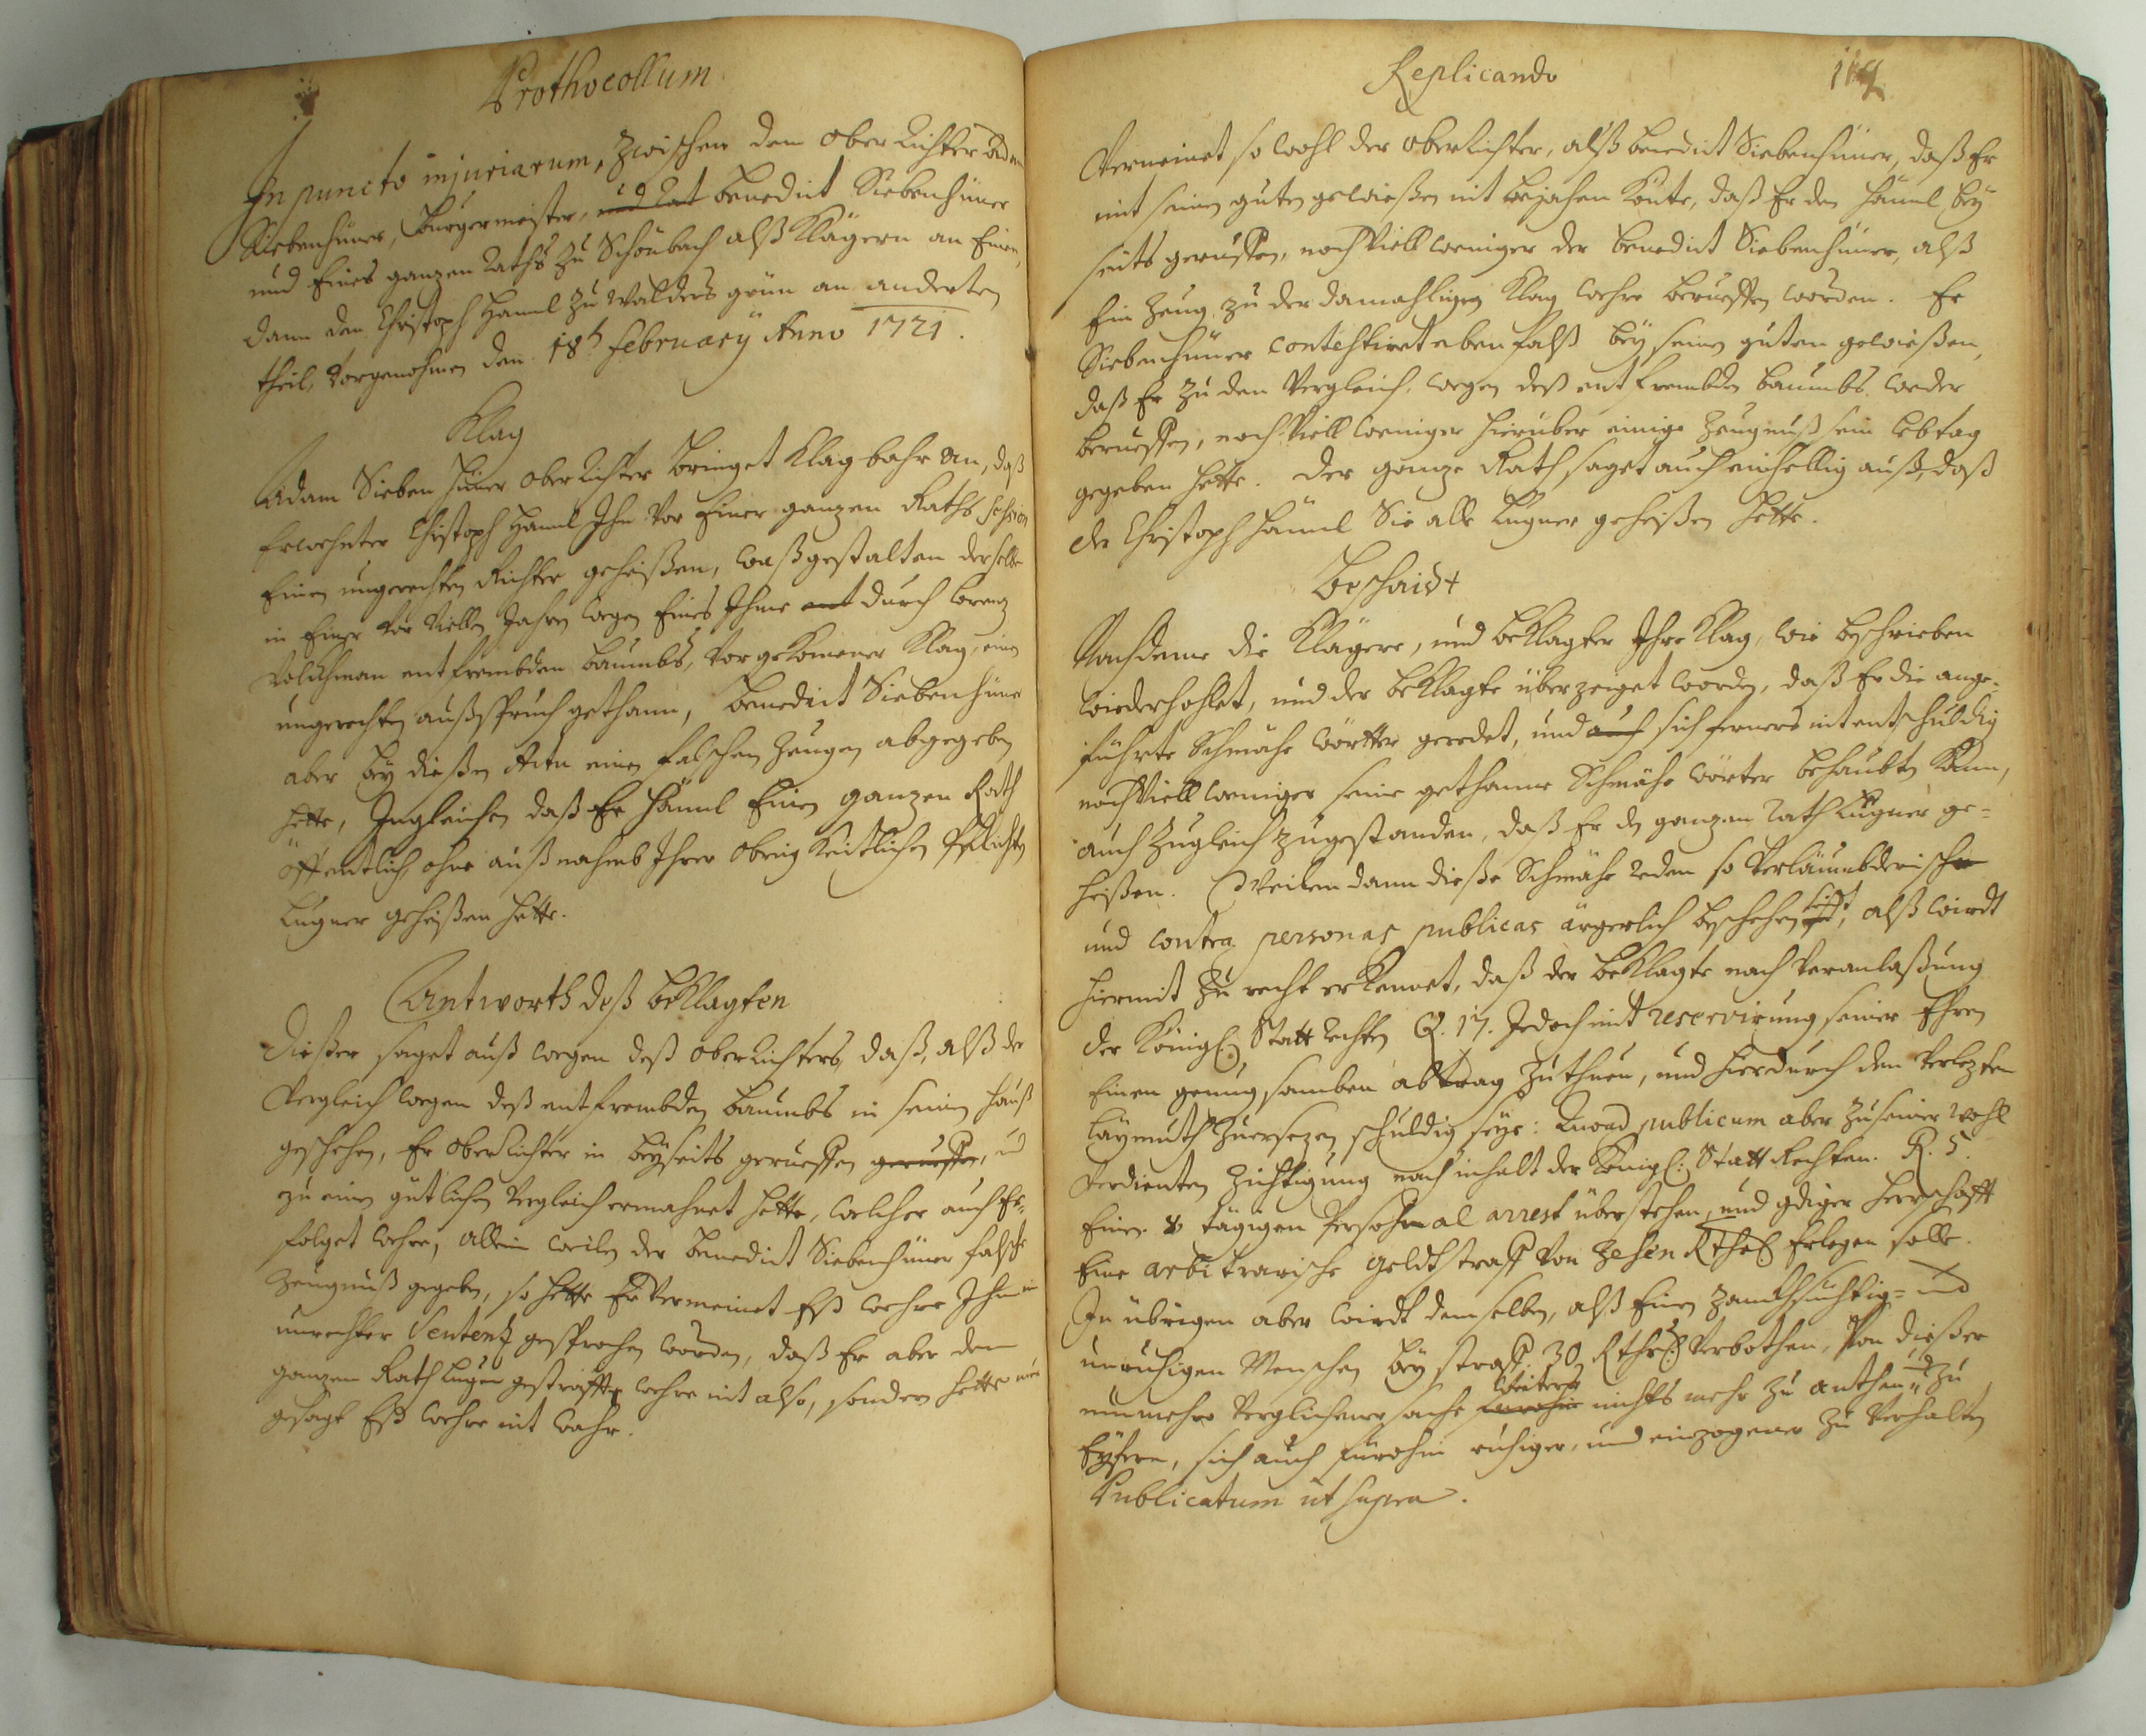 Prothocollum
In puncto injuriarum, zwischen dem Ober Richter Adam
Siebenhüner, Burgermeister, und Rat Benedict Siebenhüner
und Eines ganzen Raths zu Schönbach alß Klägern an Einen,
dann den Christoph Hannl zu Walders grün an anderten
theil, Vorgenohmen den 18t february Anno 1721.
Klag
Adam Sieben hüner Ober Richter bringet Klagbahr an, daß
Erwehnter Christoph Hannl Ihn vor Einer ganzen Raths session
Einen ungerechten Richter geheißen, waßgestalten derselbe
in Einer vor Viellen Jahren wegen Eines Ihme ent durch Lorenz
entfrembden baumbs, vorgekomener Klag, einen
ungerechten außspruch gethann, Benedict Siebenhüner
aber bey dießen Actu einen falschen Zeugen abgegeben
hette, Ingleichen daß Er Hännl Einen ganzen Rath
öffentlich, ohne außnahmb Ihrer Obrigkeitlichen Pflichten
Lugner geheißen hette.
Antworth deß beklagten
Dießer saget auß wegen deß Ober Richters, daß, alß der
Vergleich wegen deß entfrembden baumbs in seinen hauß
geschehen, Er Ober Richter in beyseits gerueffen gerueffen, und
zu einen gütlichen Vergleich ermahnet hette, welcher auch Er-
folget wehre, allein weilen der Benedict Siebenhüner falsche
Zeugnuß gegeben, so hette Er Vermeinet Eß wehre Ihm ein
unrechter Sententz gesprochen worden, daß Er aber den
ganzen Rath Lugen gestrafft wehre nit also, sondern hette nur
gesagt Eß wehre nit wahr.
Replicando
Verneinet so wohl der Ober Richter, alß Benedict Siebenhüner, daß Er
mit seinen guten gewießen nit bejahen könte, daß Er den Hännl bey
seits gerueffen, noch Viell weniger der Benedict Siebenhüner, alß
Ein Zeug zu der damahligen Klag wehre berueffen worden. Er
Siebenhüner contestiret ebenfalß bey seinen guten gewießen,
daß Er zu den Vergleich, wegen deß entfrembden baumbs weder
berueffen, noch Viell weniger hierüber einige Zeugnuß sein lebtag
gegeben hette. Der ganze Rath, saget auch einhellig auß, daß
der Christoph Hännl Sie alle Lugner geheißen hette.
Beschaidt
Nachdeme die Klägere, und beklagter Ihre Klag, wie beschrieben
wiederhohlet, und der beklagte überzeiget worden, daß Er die ange-
führte Schmähe wörtter geredet, und auch sich ferners nit entschuldig
noch Viell weniger seine gethanne Schmähe wörter behaubten kann,
auch zugleich zugestanden, daß Er den ganzen Rath Lugner ge=
heißen. Weilen dann dieße Schmähe reden so Verläumbderisch
und contra personas publicas ärgerlich beschehen sindt, alß wirdt
hiermit zu recht erkennet, daß der beklagte nach Veranlaßung
der Königl: Statt rechten Q. 17. Jedoch mit reservirung seiner Ehren
Einen genugsamben abtrag zuthuen, und hierdurch den Verlezten
zuersezen schuldig seye: Quoad publicum aber zu seiner wohl
Verdienten Züchtigung nach inhalt der Königl: Statt Rechten. R. 5.
Einen 8 tägigen Persohnal arrest überstehen, und gdiger Herrschafft
Eine arbitrarische geldtstraff von Zehen Rthl Erlegen solle.
In übrigen aber wirdt demselben, alß Einen zanksichtig= und
unruhigen Menschen bey straff 30 Rthl: Verbothen, Von dießer
nunmehro Verglichener sache furohin weiters nichts mehr zu anthen und zu
Eyfern, sich auch fürohin ruhiger, und eingezogener zu Verhalten
Publicatum ut supra.